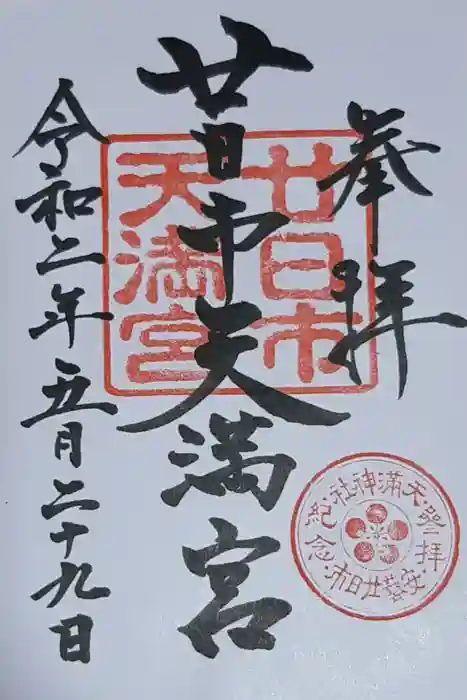 奉拝
廿日市天満宮
令和二年五月二十九日
廿日市
天満宮
天满神社
参拝
紀念
安芸廿日市